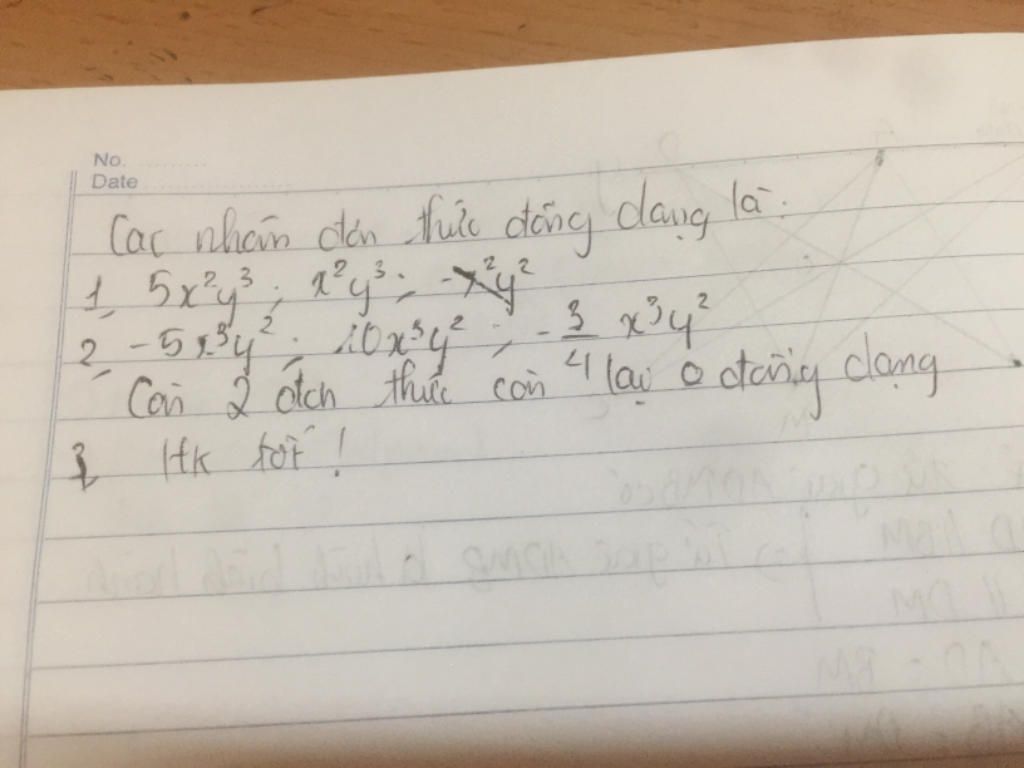 No.
Date
Các nhón đơn thức đồng dạng là:
1, 5x²y³; x²y³; -x²y²
2, -5x³y²; 10x³y²; -3/4 x³y²
Còn 2 đơn thức còn lại 0 đồng dạng
Hk tốt!